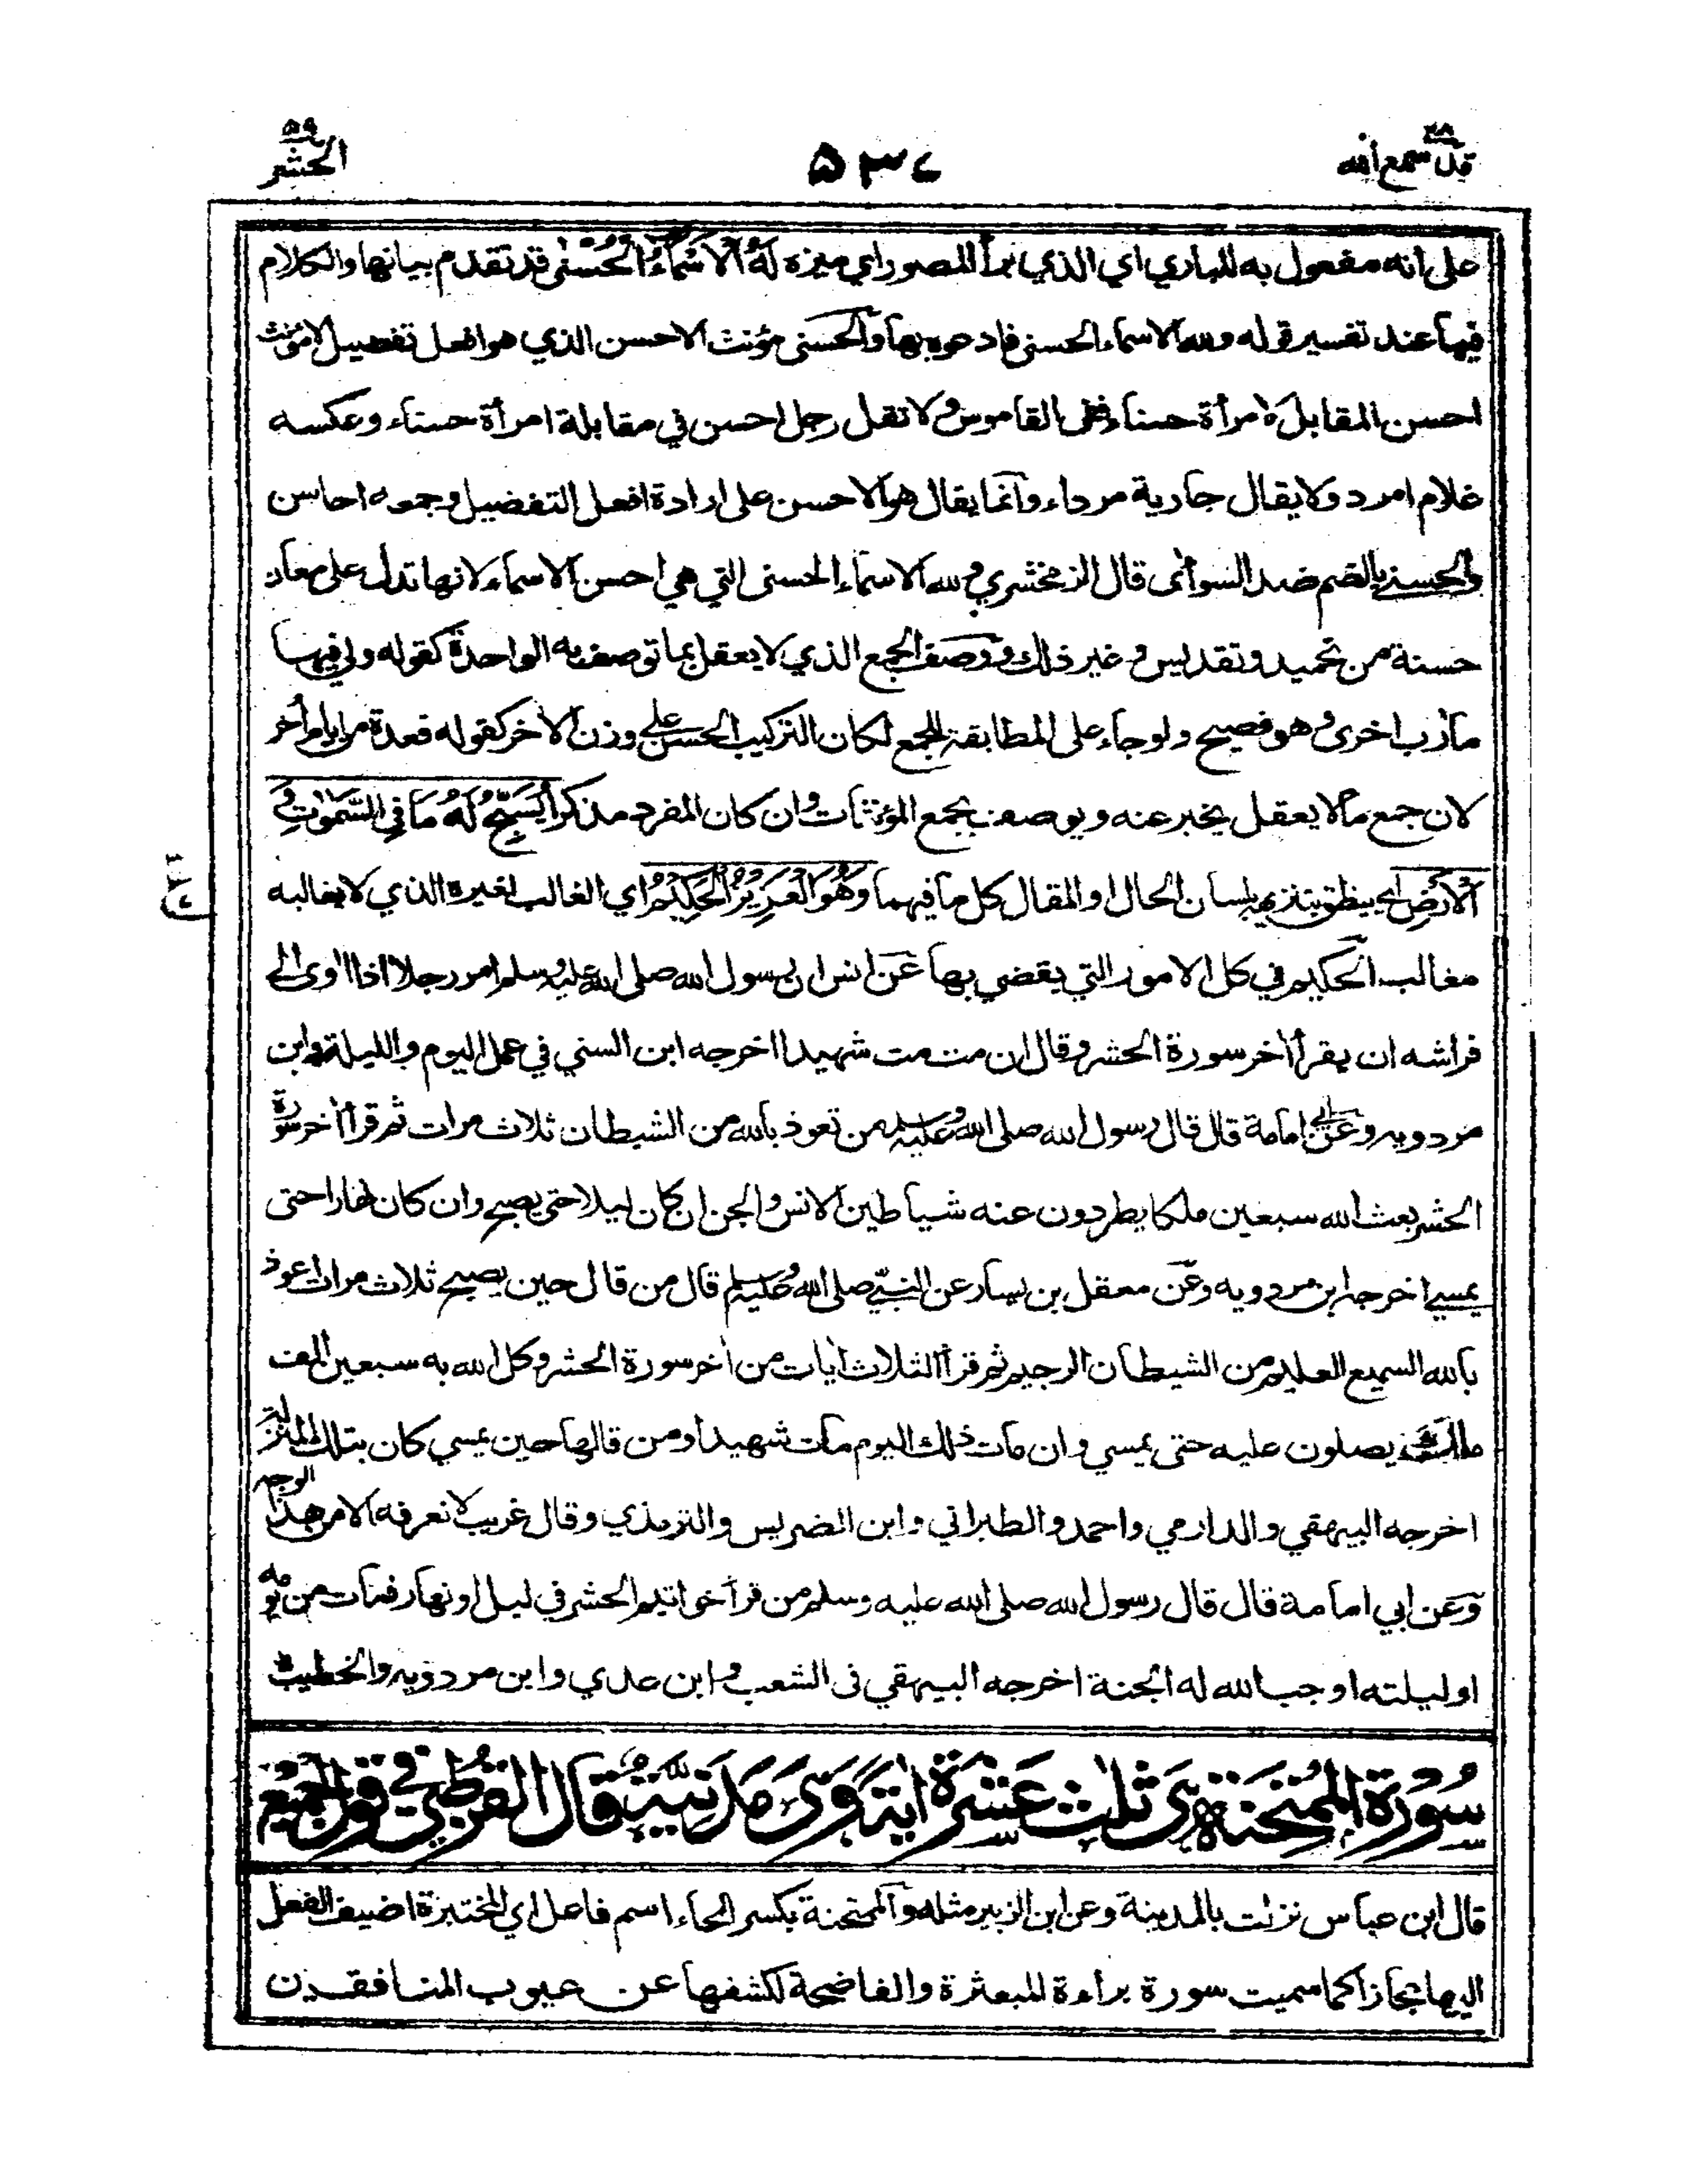 قد سمع الله ٢٨
٥٣٧
الحشر ٥٩
على انه مفعول به للباري اي الذي برأ المصور اي ميزه لَهُ الْأَسْمَاءُ الْحُسْنٰى قد تقدم بيانها والكلام
فيها عند تفسير قوله ولله الاسماء الحسنى فادعوه بها والحسنى مؤنث الاحسن الذي هو افعل تفضيل لا مؤنث
احسن المقابل لامرأة حسناء ففي القاموس ولا تقل رجل احسن في مقابلة امرأة حسناء وعكسه
غلام امرد ولا يقال جارية مرداء وانما يقال هو الاحسن على ارادة افعل التفضيل وجمعه احاسن
والحسنى بالضم ضد السوأى قال الزمخشري ولله الاسماء الحسنى التي هي احسن الاسماء لانها تدل على معان
حسنة من تحميد وتقديس وغير ذلك ووصف الجمع الذي لا يعقل بما توصف به الواحدة كقوله ولي فيها
مآرب اخرى وهو فصيح ولو جاء على المطابقة للجمع لكان التركيب الحسن على وزن الأخر كقوله فعدة من ايام أخر
لان جمع ما لا يعقل يخبر عنه ويوصف بجمع المؤنثات وان كان المفرد مذكرا يُسَبِّحُ لَهُ مَا فِي السَّمٰوٰتِ وَ
الْأَرْضِ اي ينطق بتنزيهه بلسان الحال او المقال كل ما فيهما وَهُوَ الْعَزِيزُ الْحَكِيْمُ اي الغالب لغيره الذي لا يغالبه
مغالب الحكيم في كل الامور التي يقضي بها عن انس ان رسول الله صلى الله عليه وسلم امر رجلا اذا اوى الى
فراشه ان يقرأ آخر سورة الحشر وقال ان مت مت شهيدا اخرجه ابن السني في عمل اليوم والليلة وابن
مردويه وعن ابي امامة قال قال رسول الله صلى الله عليه وسلم من تعوذ بالله من الشيطان ثلاث مرات ثم قرأ آخر سورة
الحشر بعث الله سبعين ملكا يطردون عنه شياطين الانس والجن ان كان ليلا حتى يصبح وان كان نهارا حتى
يمسي اخرجه ابن مردويه وعن معقل بن يسار عن النبي صلى الله عليه وسلم قال من قال حين يصبح ثلاث مرات اعوذ
بالله السميع العليم من الشيطان الرجيم ثم قرأ الثلاث آيات من آخر سورة الحشر وكل الله به سبعين الف
ملك يصلون عليه حتى يمسي وان مات ذلك اليوم مات شهيدا ومن قالها حين يمسي كان بتلك المنزلة
اخرجه البيهقي والدارمي واحمد والطبراني وابن الضريس والترمذي وقال غريب لا نعرفه الا من هذا الوجه
وعن ابي امامة قال قال رسول الله صلى الله عليه وسلم من قرأ خواتيم الحشر في ليل او نهار فمات من يومه
او ليلته اوجب الله له الجنة اخرجه البيهقي في الشعب وابن عدي وابن مردويه والخطيب
سُوْرَةُ الْمُمْتَحِنَةِ هِيَ ثَلٰث عَشَرَة اٰيَة وَهِيَ مَدَنِيَّةٌ قَالَ الْقُرْطُبِي فِي قَوْلِ الْجَمِيْعِ
قال ابن عباس نزلت بالمدينة وعن ابن الزبير مثله والممتحنة بكسر الحاء اسم فاعل اي المختبرة اضيف الفعل
اليها مجازا كما سميت سورة براءة المبعثرة والفاضحة لكشفها عن عيوب المنافقين